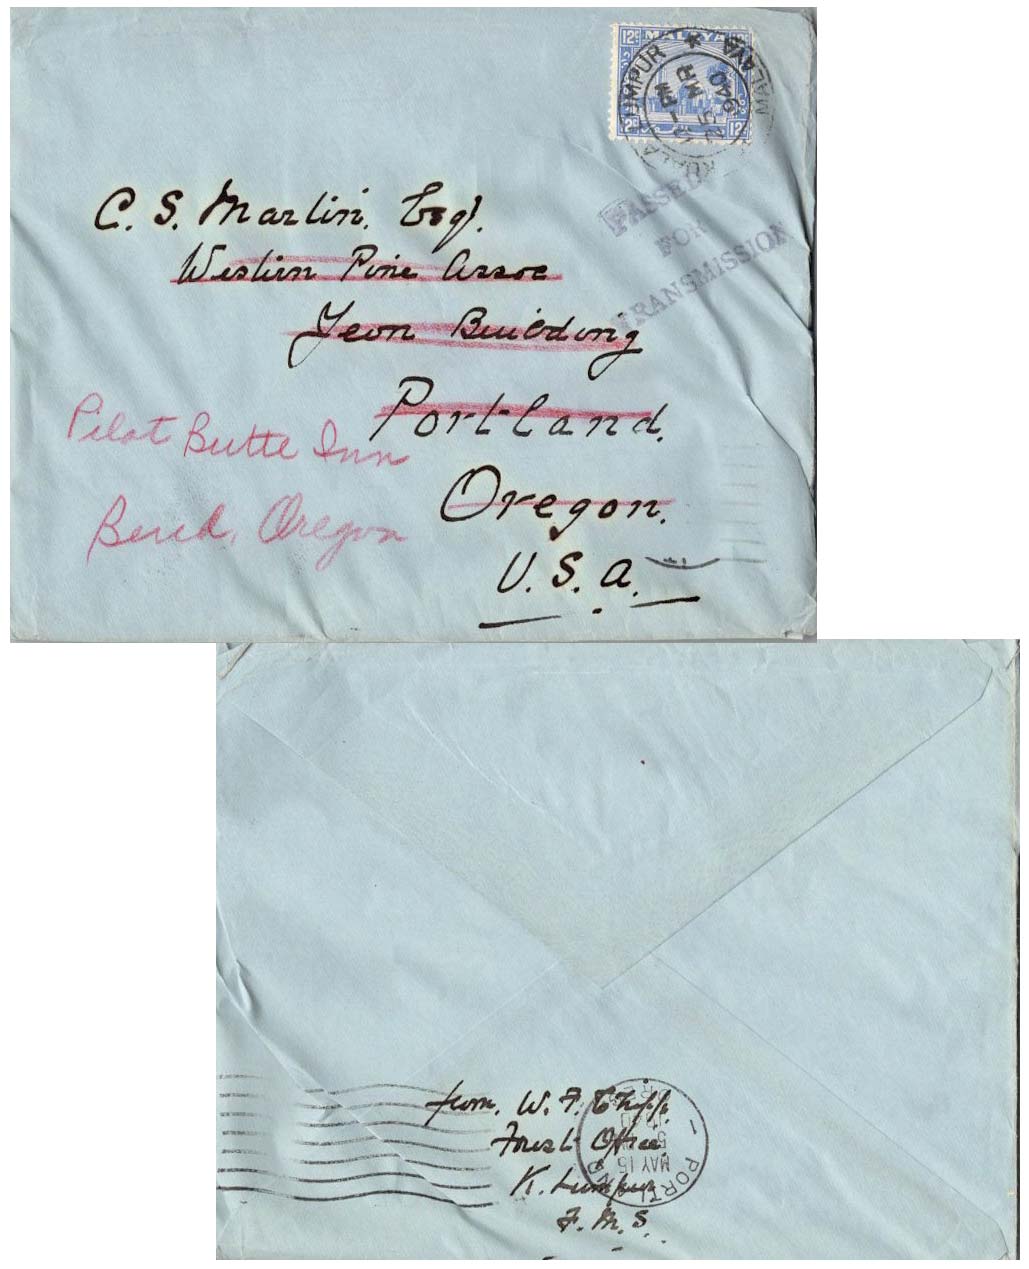 12c MALAYA
12c 12c
KUALA LUMPUR ★ MALAYA
-PM
25 MR
940
PASSED
FOR
TRANSMISSION
C. S. Martin. Esq.
Western Pine Assoc
Yeon Building
Portland.
Oregon.
U.S.A.
Pilot Butte Inn
Bend, Oregon
from. W. F. Chipp.
Forest Office
K. Lumpur
F. M. S.
PORTLAND
MAY 15